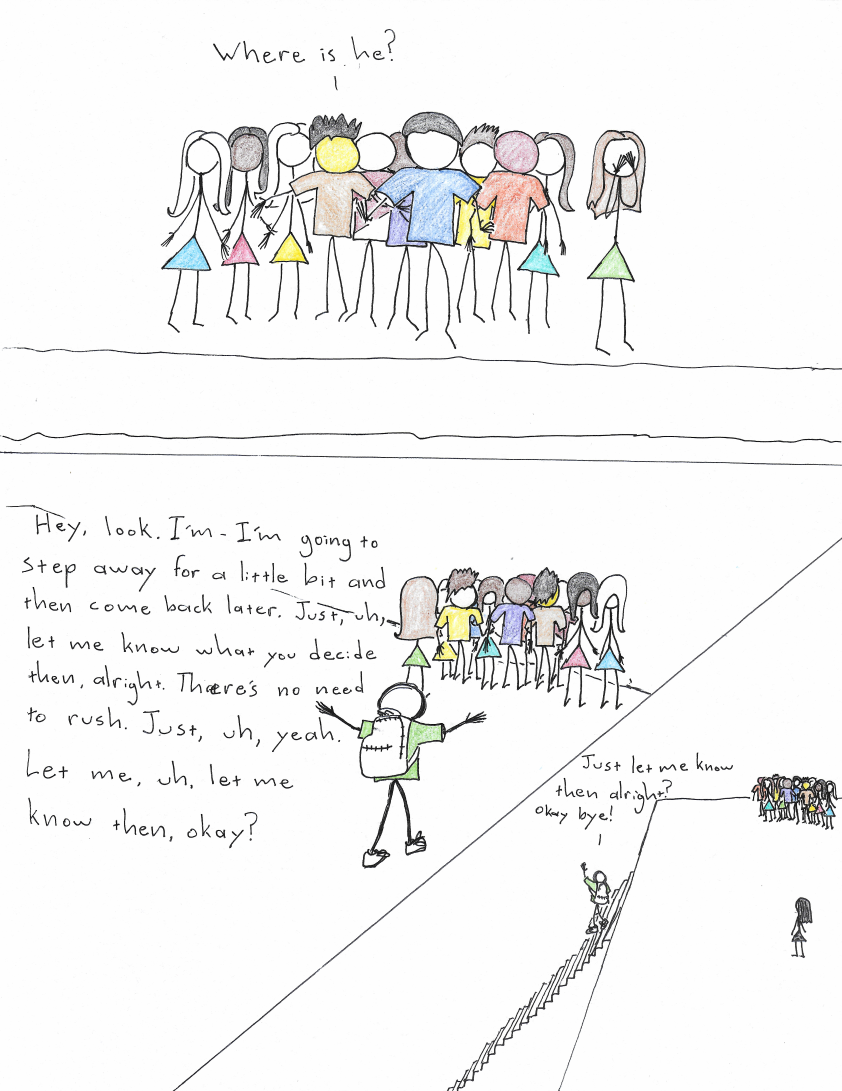 Where is he?
Hey, look. I'm - I'm going to
step away for a little bit and
then come back later. Just, uh,
let me know what you decide
then, alright. There's no need
to rush. Just, uh, yeah.
Let me, uh, let me
know then, okay?
Just let me know
then alright?
okay bye!